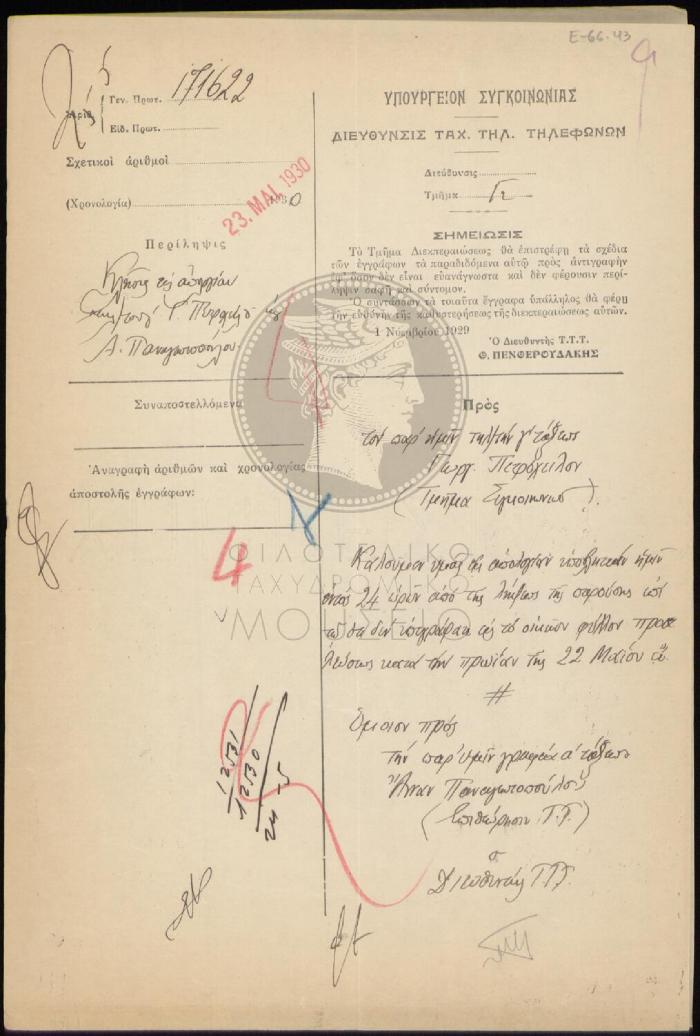 E-66.43
Γεν. Πρωτ. 171622
Ἀριθ.
Εἰδ. Πρωτ.
Σχετικοὶ ἀριθμοὶ
(Χρονολογία) 1930
23. ΜΑΪ. 1930
Περίληψις
Κλῆσις εἰς ἀπολογίαν
Γ. Πετροχείλου
Α. Παναγιωτοπούλου
Συναποστελλόμενα
Ἀναγραφὴ ἀριθμῶν καὶ χρονολογίας
ἀποστολῆς ἐγγράφων:
4
12531
12530
24-5
ΥΠΟΥΡΓΕΙΟΝ ΣΥΓΚΟΙΝΩΝΙΑΣ
ΔΙΕΥΘΥΝΣΙΣ ΤΑΧ. ΤΗΛ. ΤΗΛΕΦΩΝΩΝ
Διεύθυνσις
Τμῆμα
ΣΗΜΕΙΩΣΙΣ
Τὸ Τμῆμα Διεκπεραιώσεως θὰ ἐπιστρέφῃ τὰ σχέδια
τῶν ἐγγράφων τὰ παραδιδόμενα αὐτῷ πρὸς ἀντιγραφὴν
ἐφ' ὅσον δὲν εἶναι εὐανάγνωστα καὶ δὲν φέρουσιν περί-
ληψιν σαφῆ καὶ σύντομον.
Ὁ συντάσσων τὰ τοιαῦτα ἔγγραφα ὑπάλληλος θὰ φέρῃ
τὴν εὐθύνην τῆς καθυστερήσεως τῆς διεκπεραιώσεως αὐτῶν.
1 Νοεμβρίου 1929
Ὁ Διευθυντὴς Τ.Τ.Τ.
Θ. ΠΕΝΘΕΡΟΥΔΑΚΗΣ
Πρὸς
τὸν παρ' ἡμῖν τηλ/τὴν γ' τάξεως
Γεώργ. Πετρόχειλον
(Τμῆμα
Καλοῦμεν ὑμᾶς εἰς ἀπολογίαν ὑποβλητέαν ἡμῖν
ἐντὸς 24 ὡρῶν ἀπὸ τῆς λήψεως τῆς παρούσης ἐπὶ
τῷ ὅτι δὲν ὑπεγράψατε εἰς τὸ οἰκεῖον φύλλον προσ-
ελεύσεως κατὰ τὴν πρωΐαν τῆς 22 Μαΐου ἐ.ἔ.
#
Ὅμοιον πρὸς
τὴν παρ' ἡμῖν γραφέα α' τάξεως
Ἄνναν Παναγιωτοπούλου
(Ἐπιθεώρησιν Τ.Τ.)
Ὁ
Διευθυντὴς Τ.Τ.Τ.
ΦΙΛΟΤΕΛΙΚΟ
ΤΑΧΥΔΡΟΜΙΚΟ
ΜΟΥΣΕΙΟ